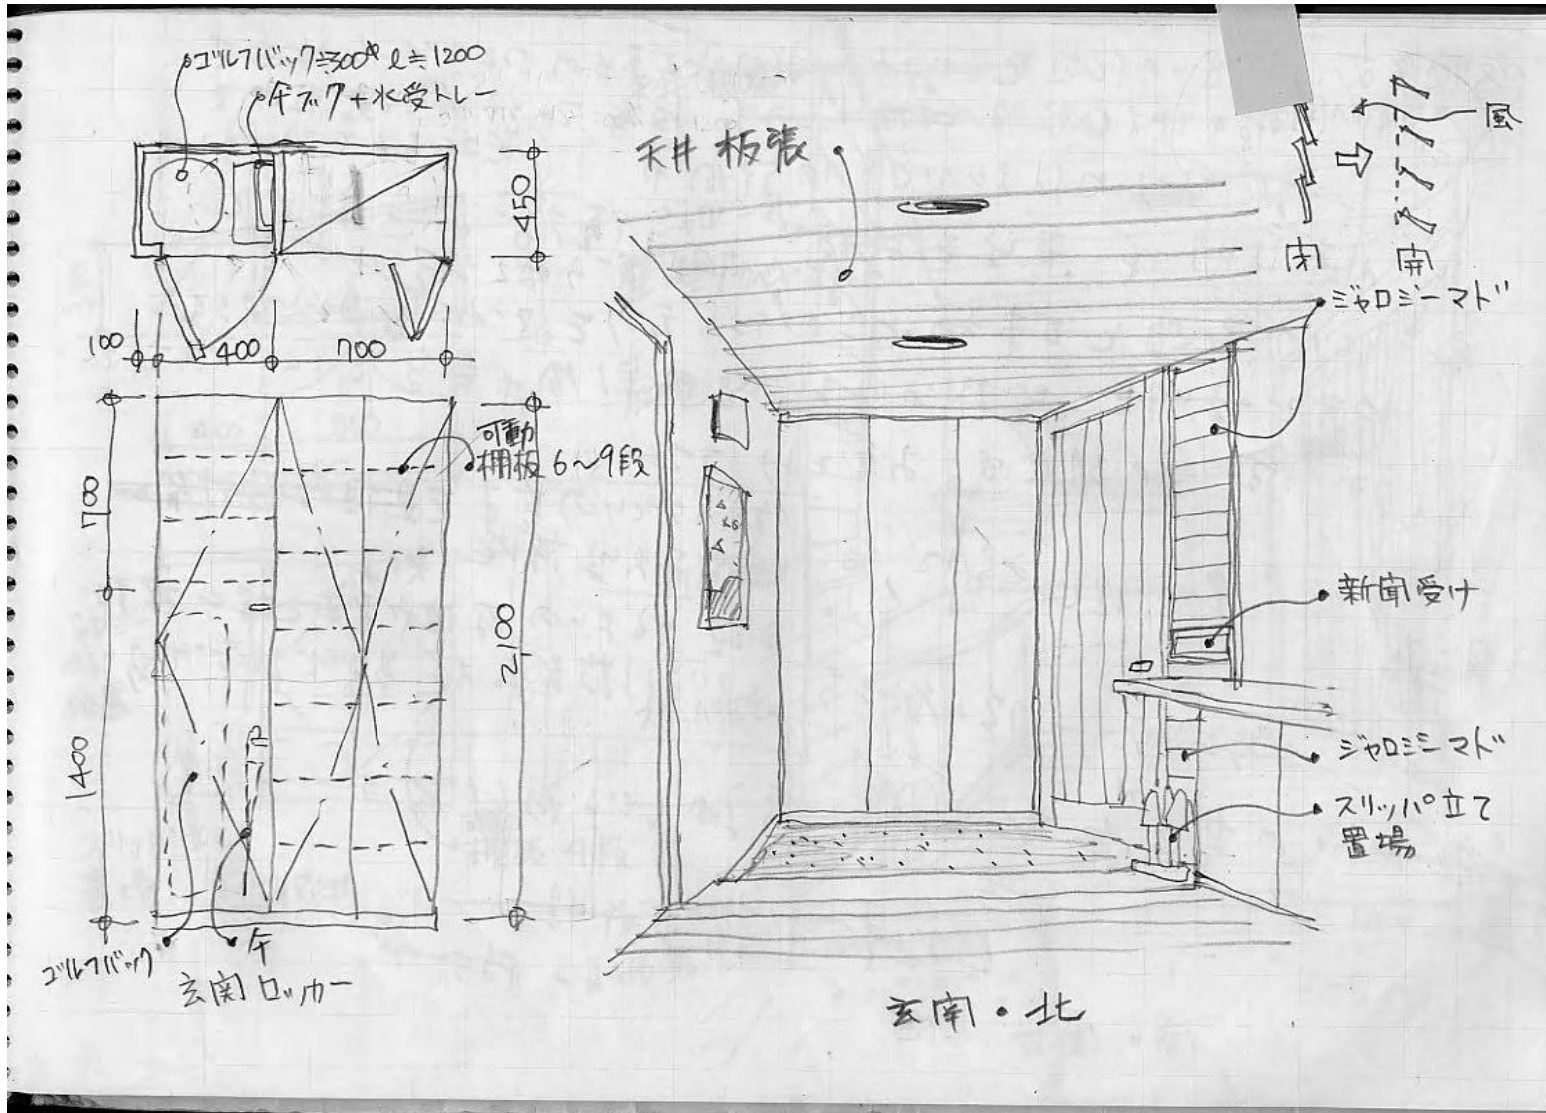 ゴルフバック≒300φ ℓ≒1200
傘フック+水受トレー
450
100
400
700
可動
棚板 6〜9段
700
1400
2100
ゴルフバック
傘
玄関ロッカー
天井 板張
風
閉
開
ジャロジーマド
新聞受け
ジャロジーマド
スリッパ立て
置場
玄関・北